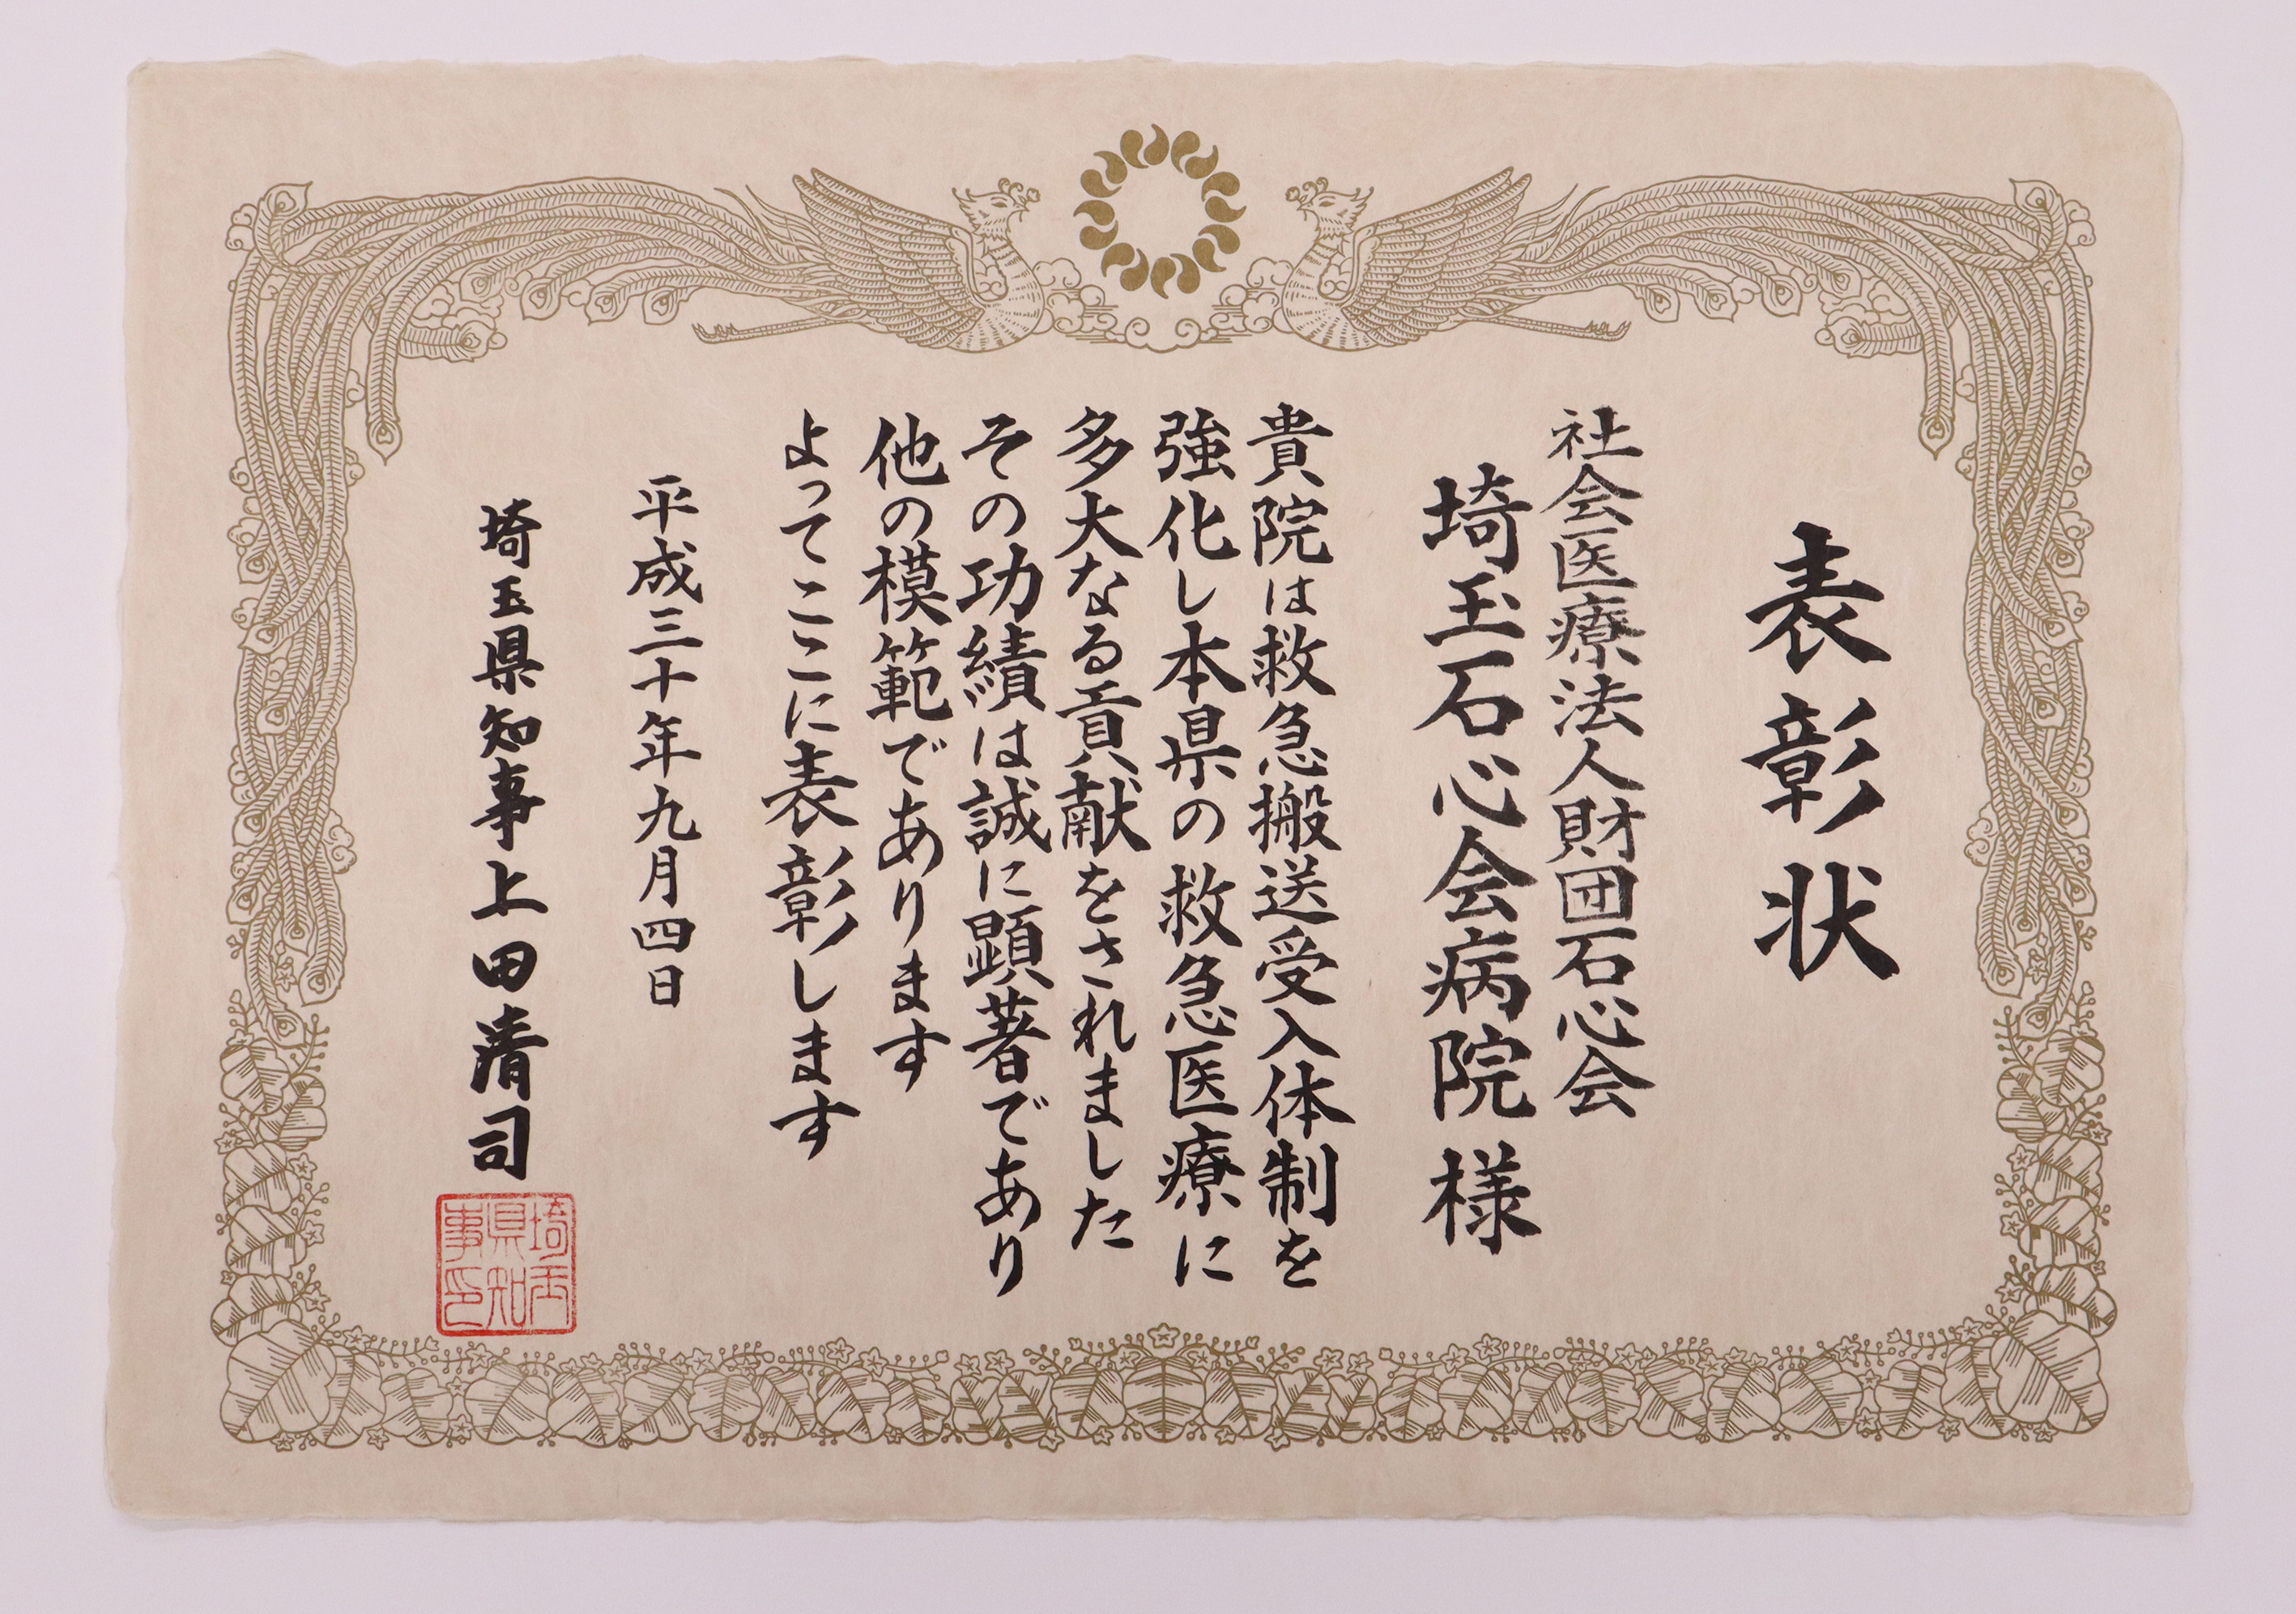 表彰状
社会医療法人財団石心会
埼玉石心会病院様
貴院は救急搬送受入体制を
強化し本県の救急医療に
多大なる貢献をされました
その功績は誠に顕著であり
他の模範であります
よってここに表彰します
平成三十年九月四日
埼玉県知事上田清司
埼玉
県知
事印